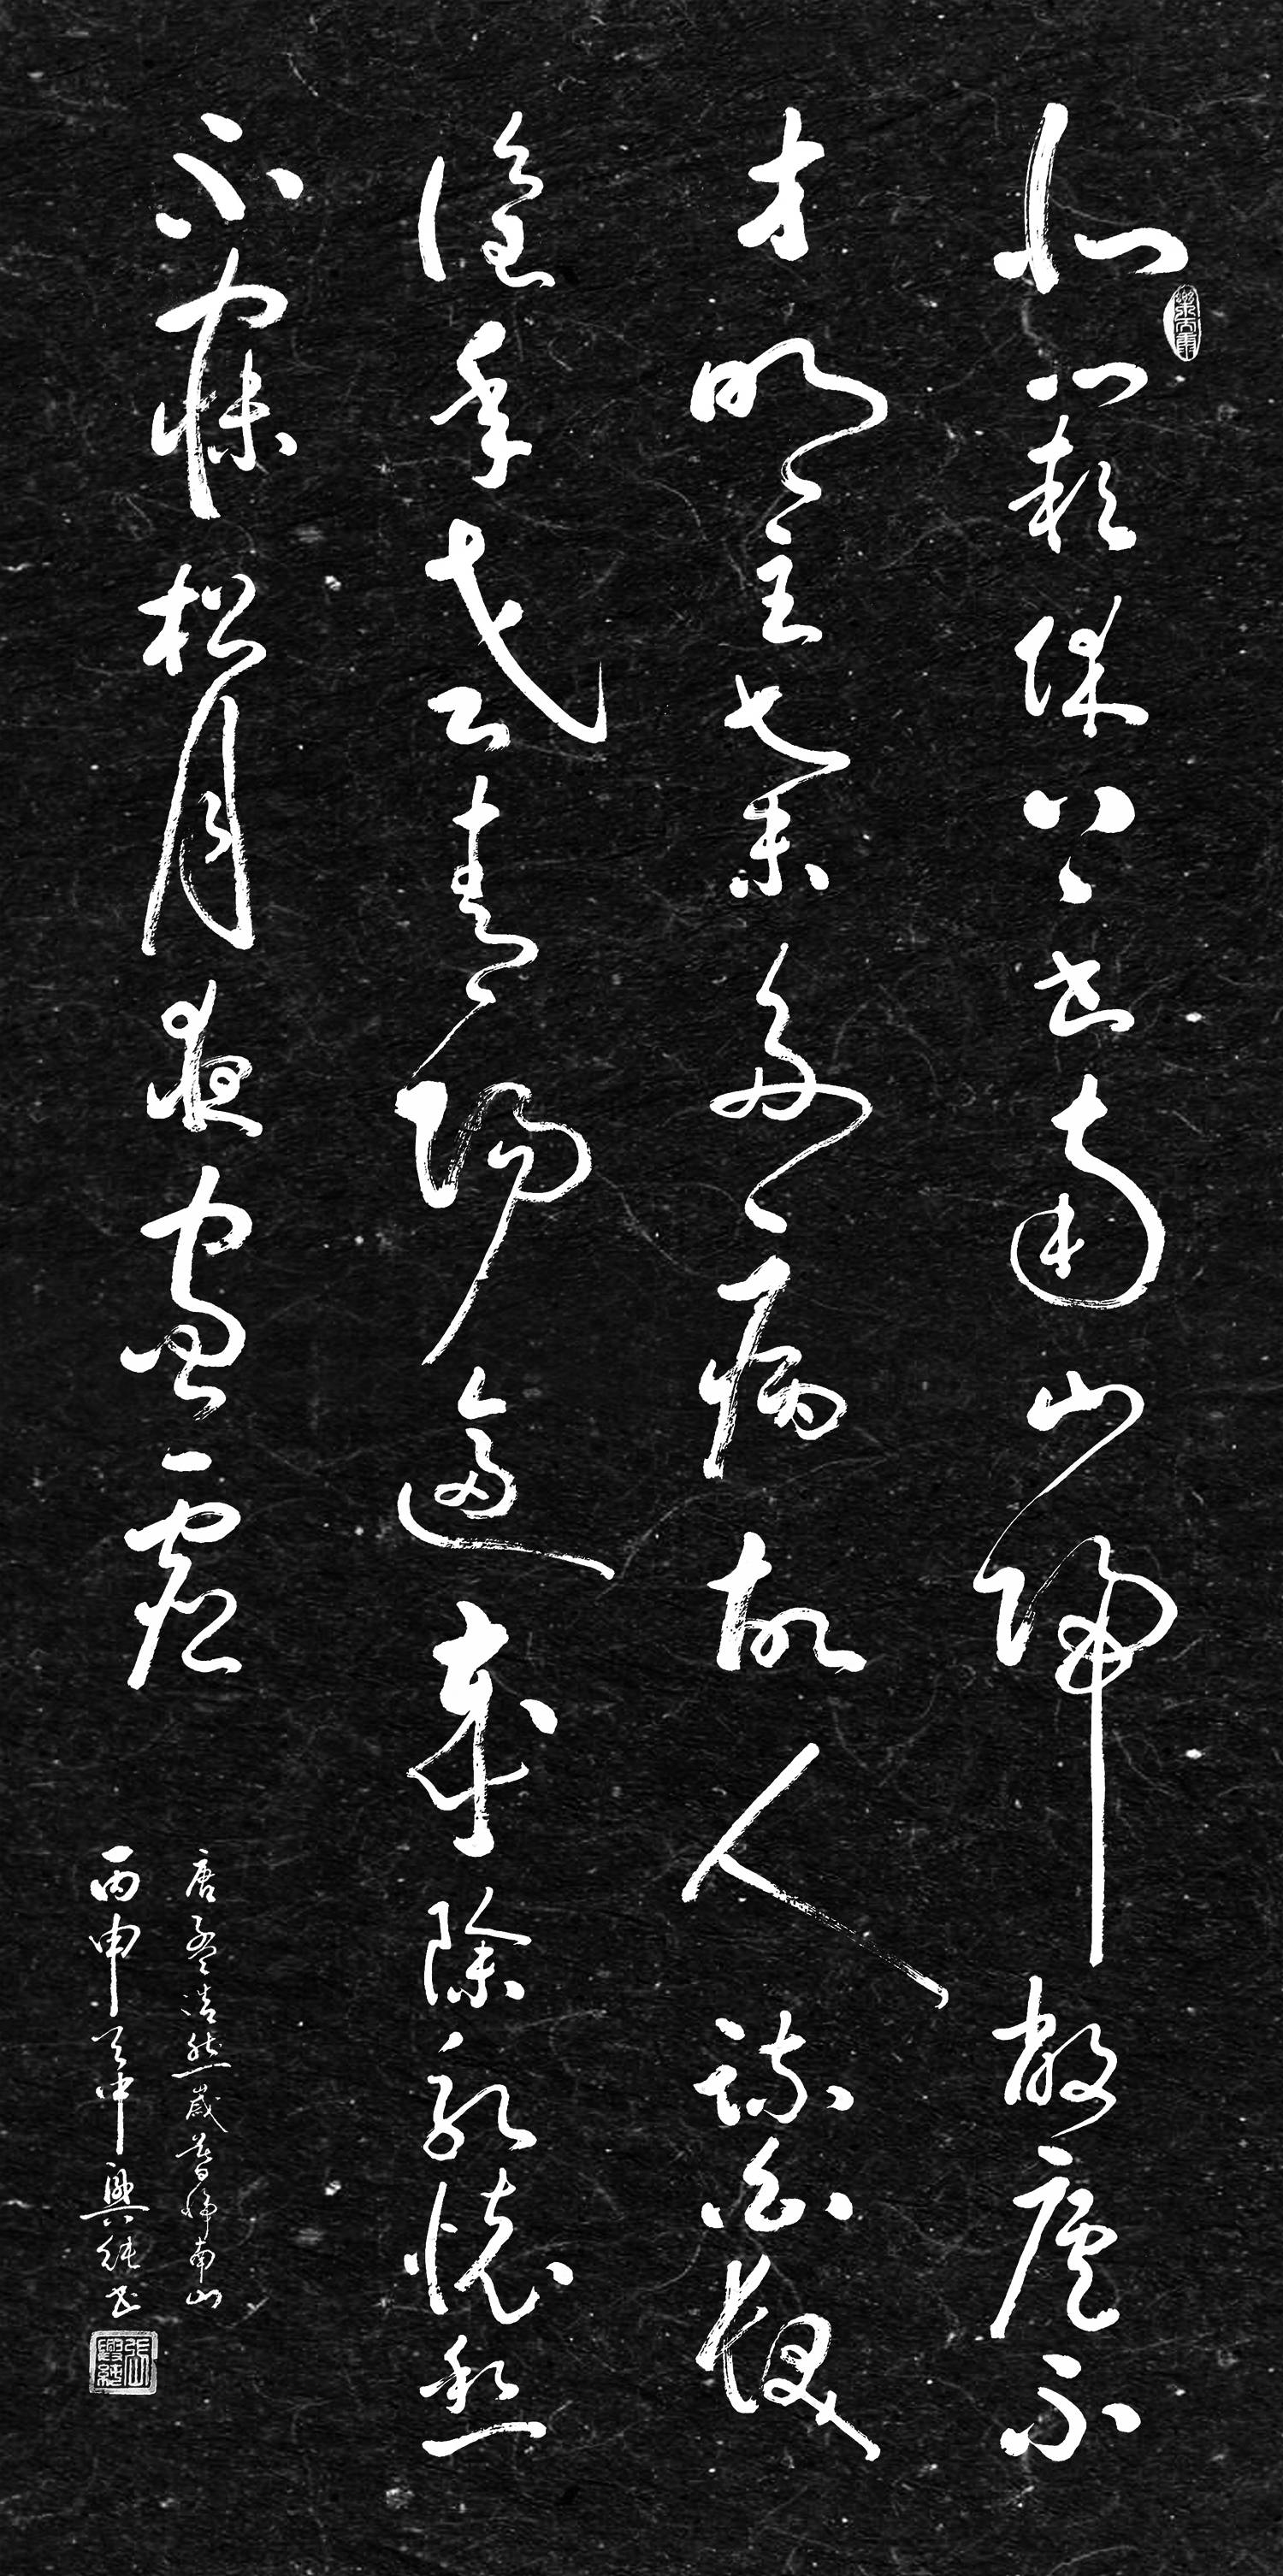 北闕休上書南山歸敝廬不
才明主棄多病故人疏白髮
催年老青陽逼歲除永懷愁
不寐松月夜窗虛
唐孟浩然歲暮歸南山
丙申天中興純書